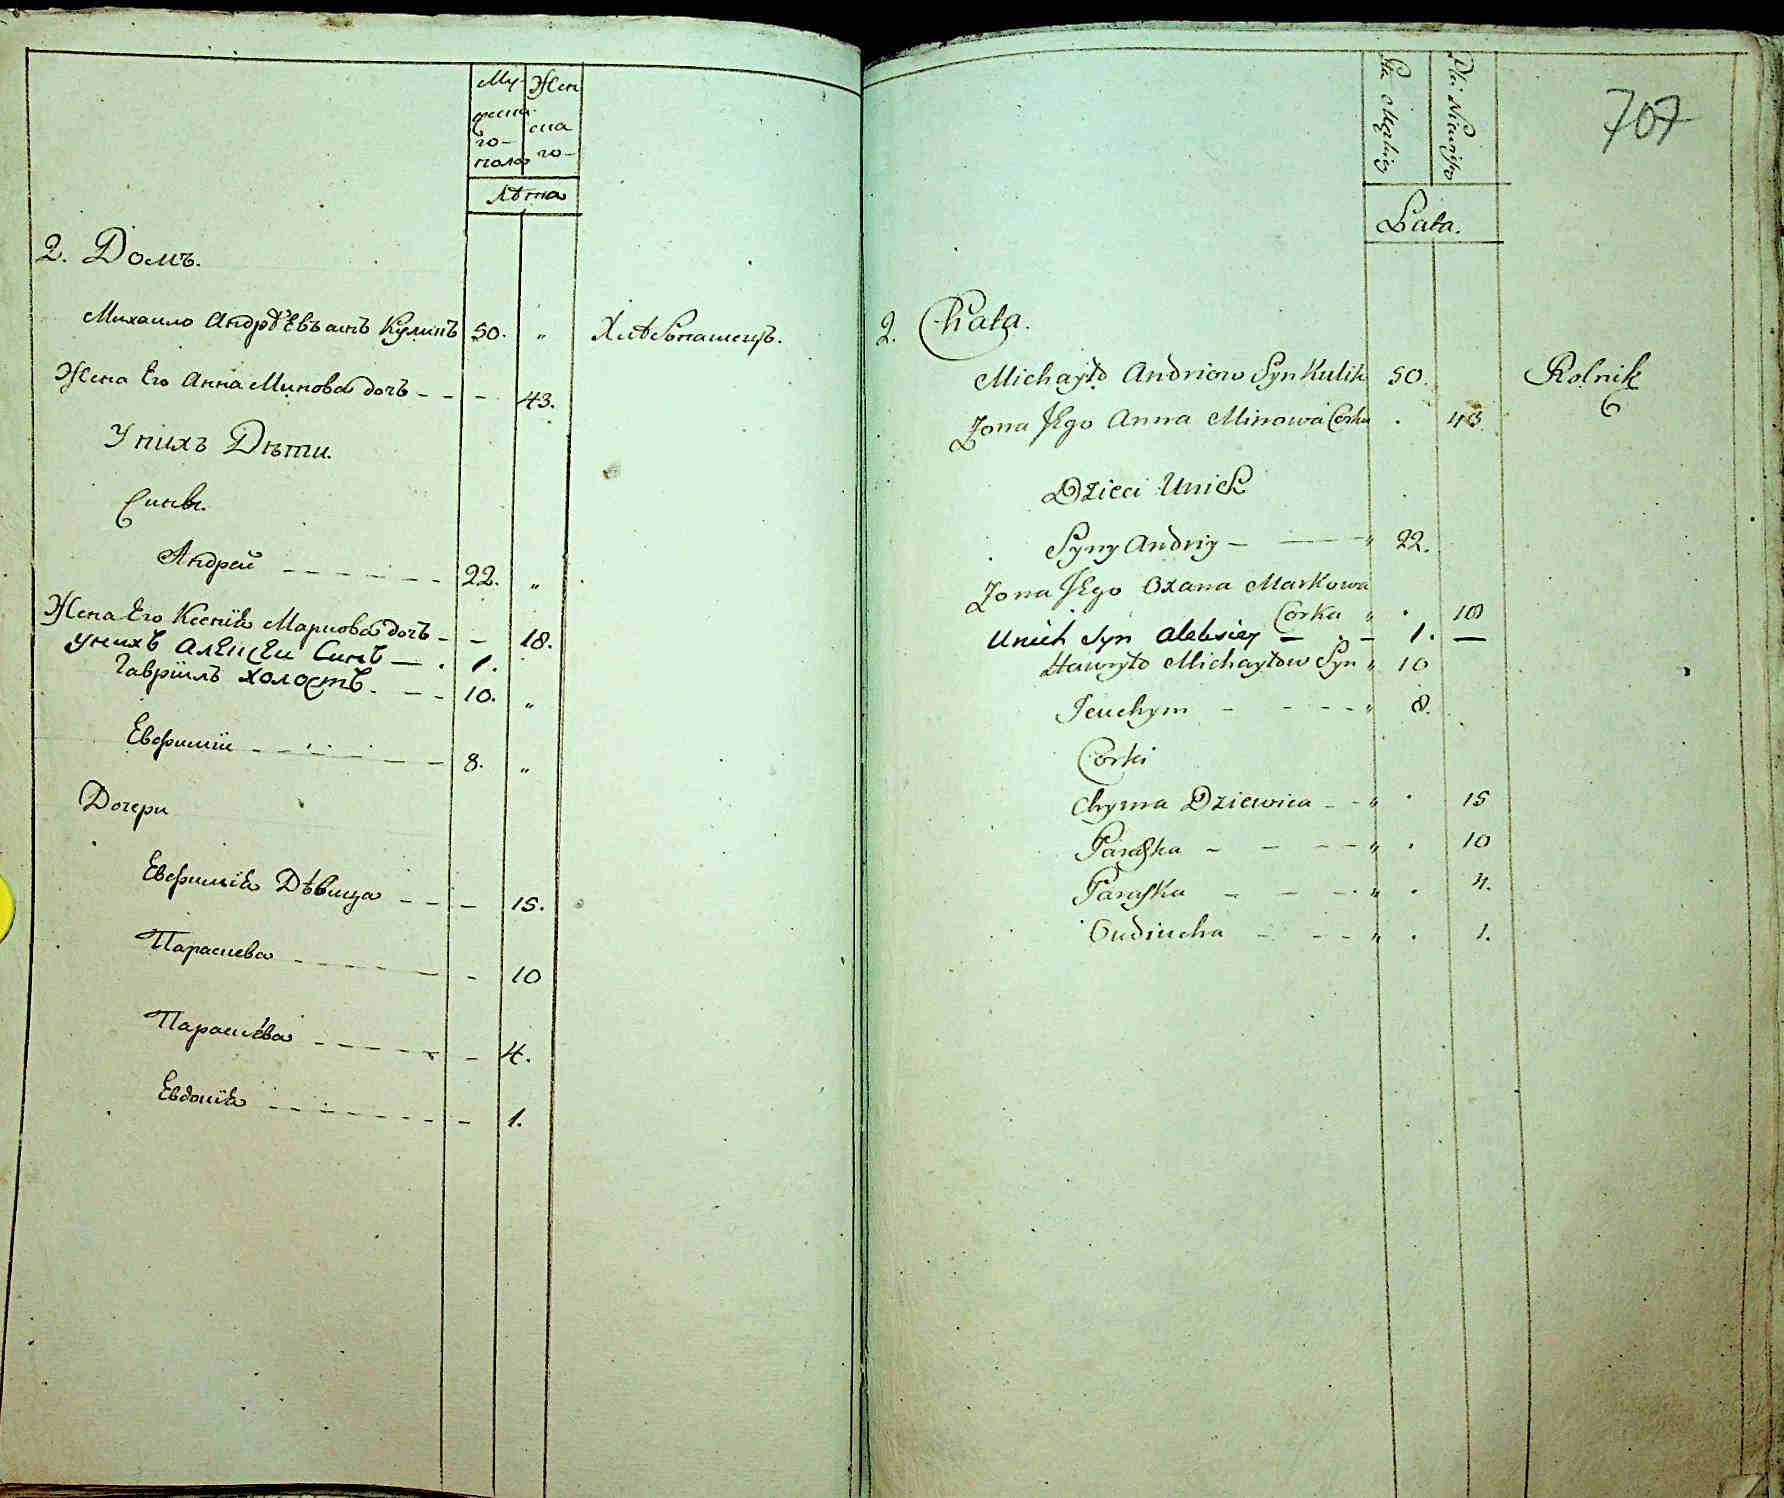 Му-
жеска
го-
пола
Жен
ска
го-
Лѣта
2. Домъ.
Михаило Андрѣевъ сынъ Куликъ 50. „ Хлѣбопашецъ.
Жена Его Анна Минова дочь - - - 43.
У нихъ Дѣти.
Сины.
Андрей - - - - - - 22. „
Жена Его Ксенія Маркова дочь - - 18.
унихъ Алексеи Синъ — . 1.
Гавріилъ холостъ. - - 10. „
Евфимій - - - - - - 8. „
Дочери
Евфимія Дѣвица - - - 15.
Параскева - - - - - - 10
Параскева - - - - - - 4.
Евдокія - - - - - - - 1.
707
Płci Męskiey
Płci Niewiść
Lata.
2. Chata.
Michayło Andriow Syn Kulik 50. Rolnik
Żona Jego Anna Minowa Corka . 43
Dzieci Unich
Syny Andriy - — „ 22.
Żona Jego Oxana Markowa
Corka „ . 18
Unich Syn Aleksiey — - — 1. —
Hawryło Michayłow Syn „ 10
Jeuchym - - - - „ 8.
Corki
Chyma Dziewica - - „ . 15
Paraska - - - - „ . 10
Paraska - - - . „ . 4.
Oudiucha - - - „ . 1.